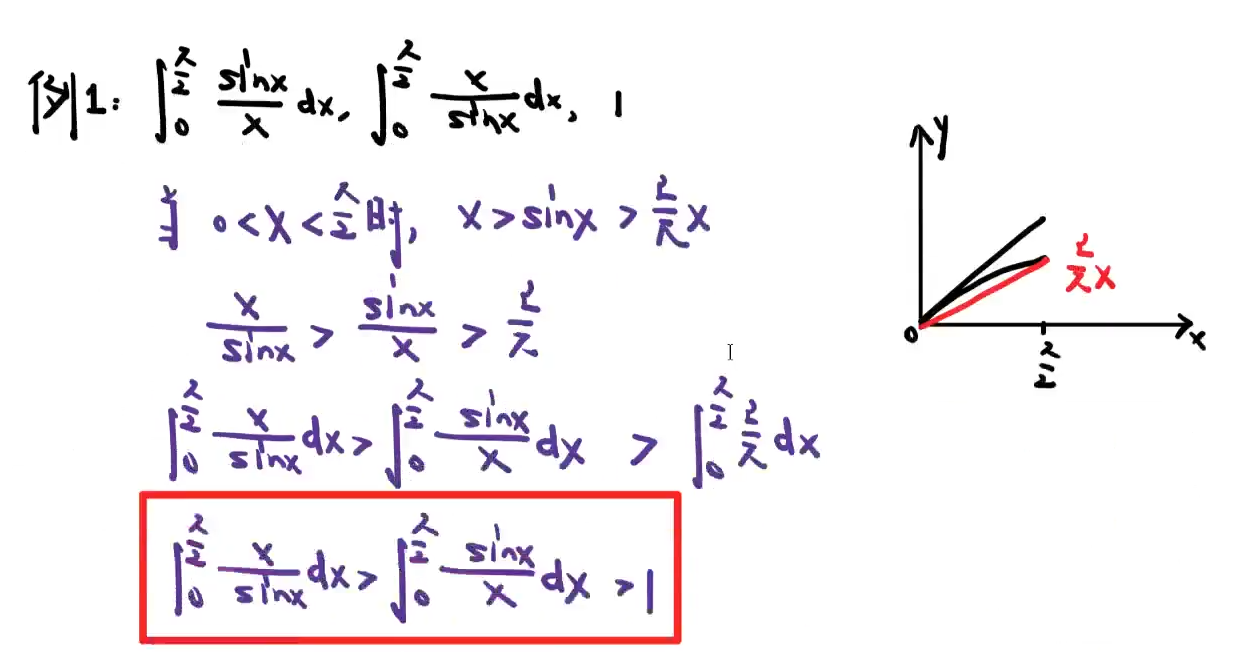 例1: ∫₀^(π/2) sinx/x dx, ∫₀^(π/2) x/sinx dx, 1
当 0<x<π/2时, x>sinx>2/π x
x/sinx > sinx/x > 2/π
∫₀^(π/2) x/sinx dx > ∫₀^(π/2) sinx/x dx > ∫₀^(π/2) 2/π dx
∫₀^(π/2) x/sinx dx > ∫₀^(π/2) sinx/x dx > 1
y
2/π x
0
π/2
x